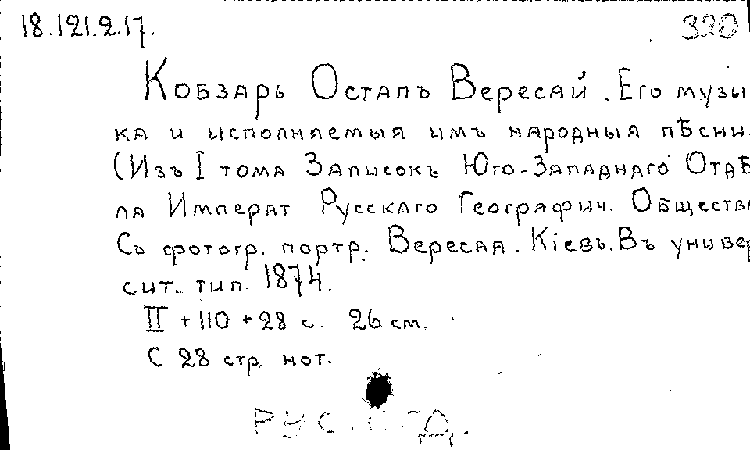 18.121.2.17.
320
Кобзарь Остапъ Вересай. Его музы
ка и исполняемыя имъ народныя пѣсни.
(Изъ I тома Записокъ Юго-Западнаго Отдѣ
ла Императ Русскаго Географич. Общества
Съ фотогр. портр. Вересая. Кіевъ. Въ универ
сит. тип. 1874.
II + 110 + 28 с. 26 см.
С 28 стр. нот.
РУС.